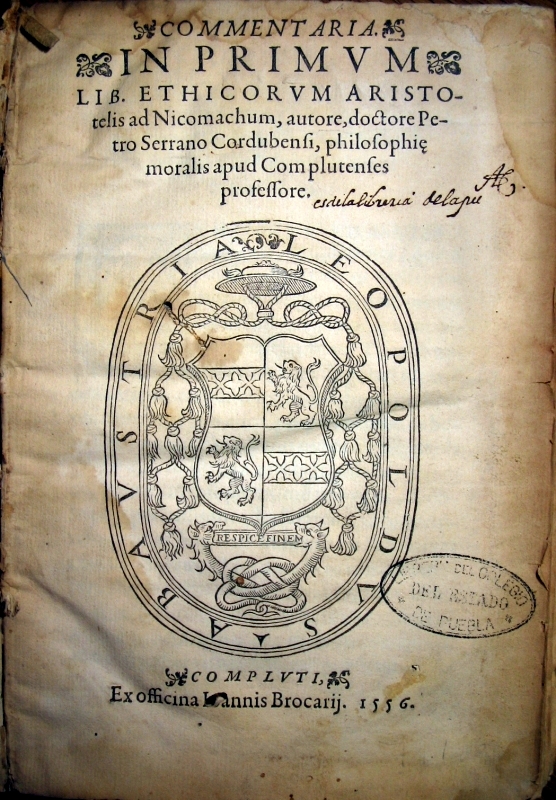 COMMENTARIA.
IN PRIMVM
LIB. ETHICORVM ARISTO-
telis ad Nicomachum, autore, doctore Pe-
tro Serrano Cordubensi, philosophię
moralis apud Complutenses
professore.
es de la libreria de la
LEOPOLDVS AB AVSTRIA
RESPICE FINEM
DEL COLEGIO
DEL ESTADO
DE PUEBLA
COMPLVTI,
Ex officina Ioannis Brocarij. 1556.